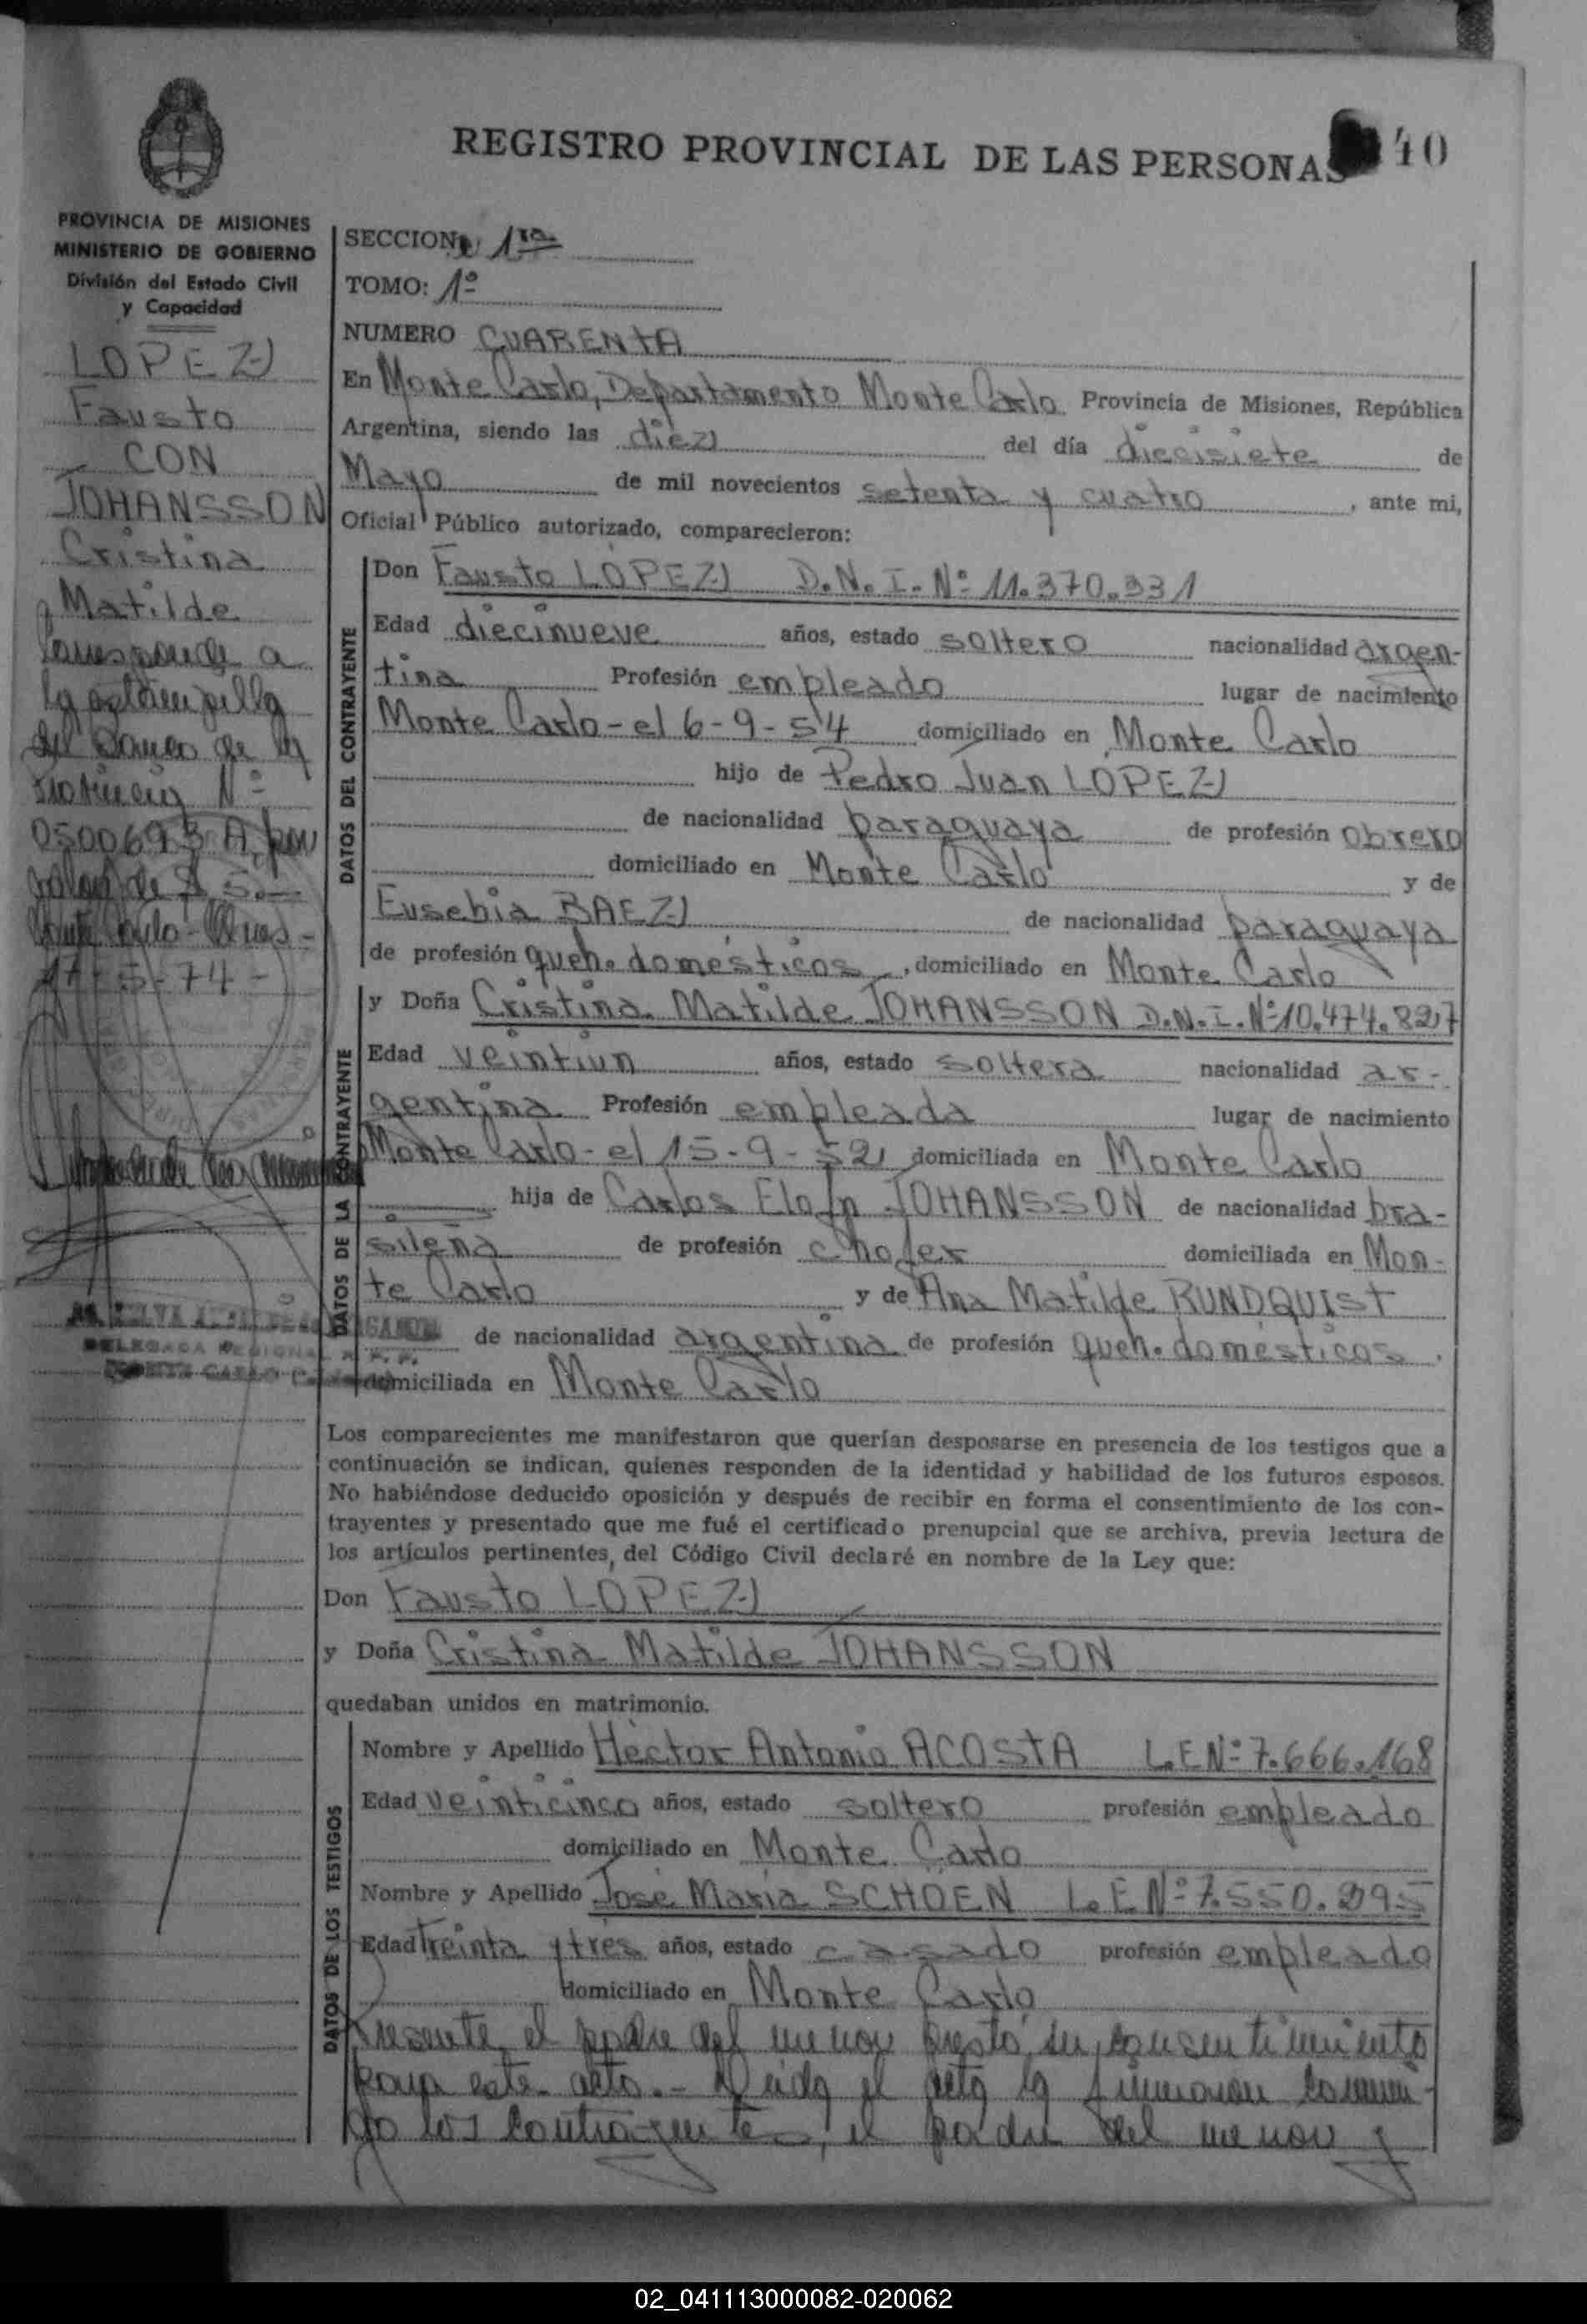 REGISTRO PROVINCIAL DE LAS PERSONAS 40
PROVINCIA DE MISIONES
MINISTERIO DE GOBIERNO
División del Estado Civil
y Capacidad
LOPEZ
Fausto
CON
JOHANSSON
Cristina
Matilde
Corresponde a
la estampilla
del Banco de la
Provincia Nº
0500693 A, por
valor de $ 5.—
Monte Carlo - Mnes -
17-5-74-
DELEGADA REGIONAL R. P. P.
MONTE CARLO
SECCION: 1ra
TOMO: 1º
NUMERO CUARENTA
En Monte Carlo, Departamento Monte Carlo Provincia de Misiones, República
Argentina, siendo las diez del día diecisiete de
Mayo de mil novecientos setenta y cuatro, ante mi,
Oficial Público autorizado, comparecieron:
DATOS DEL CONTRAYENTE
Don Fausto LOPEZ D.N.I. Nº 11.370.331
Edad diecinueve años, estado soltero nacionalidad argen-
tina Profesión empleado lugar de nacimiento
Monte Carlo - el 6-9-54 domiciliado en Monte Carlo
hijo de Pedro Juan LOPEZ
de nacionalidad paraguaya de profesión obrero
domiciliado en Monte Carlo y de
Eusebia BAEZ de nacionalidad paraguaya
de profesión queh. domésticos, domiciliado en Monte Carlo
DATOS DE LA CONTRAYENTE
y Doña Cristina Matilde JOHANSSON D.N.I. Nº 10.474.827
Edad veintiun años, estado soltera nacionalidad ar-
gentina Profesión empleada lugar de nacimiento
Monte Carlo - el 15-9-52 domiciliada en Monte Carlo
hija de Carlos Elofn JOHANSSON de nacionalidad bra-
sileña de profesión chofer domiciliada en Mon-
te Carlo y de Ana Matilde RUNDQUIST
de nacionalidad argentina de profesión queh. domésticos,
domiciliada en Monte Carlo
Los comparecientes me manifestaron que querían desposarse en presencia de los testigos que a
continuación se indican, quienes responden de la identidad y habilidad de los futuros esposos.
No habiéndose deducido oposición y después de recibir en forma el consentimiento de los con-
trayentes y presentado que me fué el certificado prenupcial que se archiva, previa lectura de
los artículos pertinentes, del Código Civil declaré en nombre de la Ley que:
Don Fausto LOPEZ
y Doña Cristina Matilde JOHANSSON
quedaban unidos en matrimonio.
DATOS DE LOS TESTIGOS
Nombre y Apellido Héctor Antonio ACOSTA L.E Nº 7.666.168
Edad veinticinco años, estado soltero profesión empleado
domiciliado en Monte Carlo
Nombre y Apellido José María SCHÖEN L.E Nº 7.550.295
Edad treinta y tres años, estado casado profesión empleado
domiciliado en Monte Carlo
Presente el padre del menor prestó su consentimiento
para este acto.- Leída el acta la firmaron conmi-
go los contrayentes, el padre del menor y
02_041113000082-020062